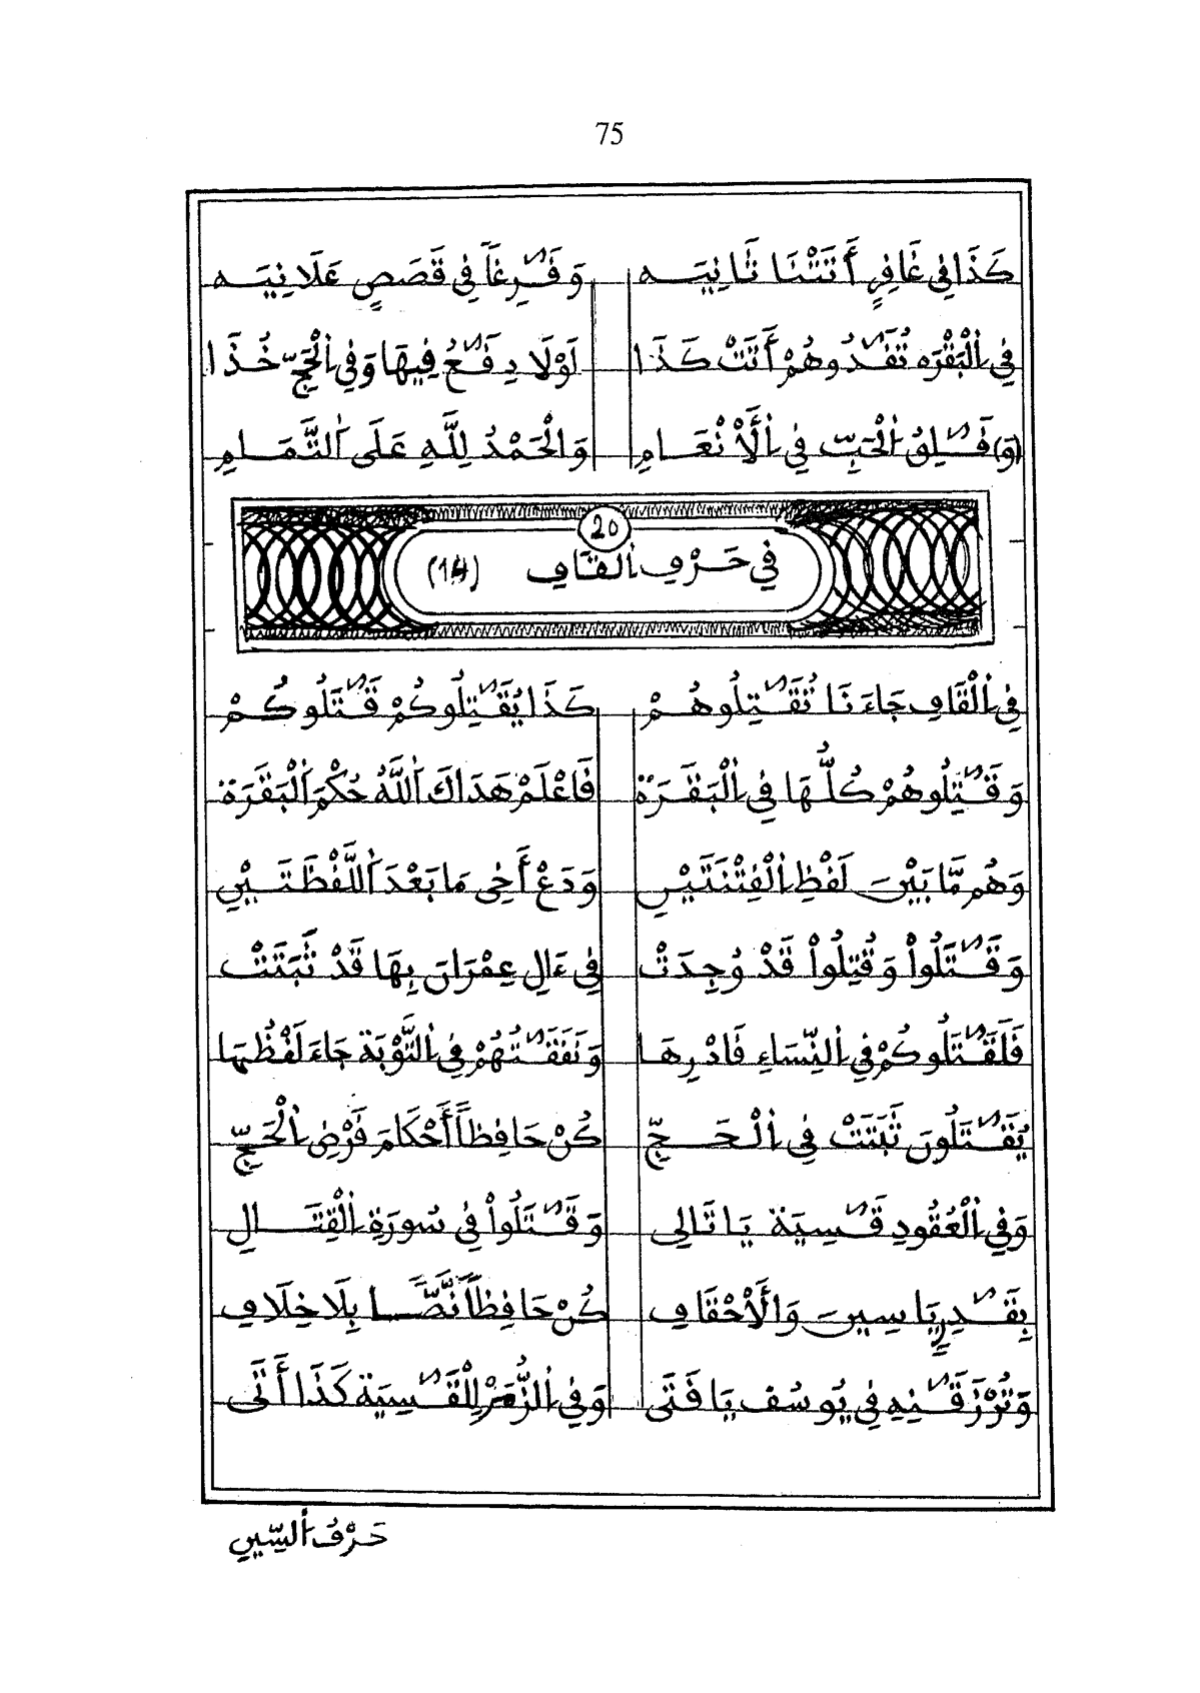 75
كَذَا فِي غَافِرٍ أَتَتْنَا ثَانِيَه وَفَٰرِغاً فِي قَصَصٍ عَلَانِيَه
فِي الْبَقَرَه تُفَٰدُوهُمْ أَتَتْ كَذَا لَوْلَا دِفَٰعُ فِيهَا وَفِي الْحَجِّ خُذَا
(وَ) فَٰلِقُ الْحَبِّ فِي الْأَنْعَامِ وَالْحَمْدُ لِلَّهِ عَلَى التَّمَامِ
20
فِي حَرْفِ الْقَافِ (14)
فِي الْقَافِ جَاءَنَا تُقَٰتِلُوهُمْ كَذَا يُقَٰتِلُوكُمْ قَٰتَلُوكُمْ
وَقَٰتِلُوهُمْ كُلُّهَا فِي الْبَقَرَةْ فَاعْلَمْ هَدَاكَ اللَّهُ حُكْمَ الْبَقَرَةْ
وَهُم مَّا بَيْنَ لَفْظِ الْفِتْنَتَيْنِ وَدَعْ أَخِي مَا بَعْدَ اللَّفْظَتَيْنِ
وَقَٰتَلُواْ وَقُتِلُواْ قَدْ وُجِدَتْ فِي ءَالِ عِمْرَانَ بِهَا قَدْ ثَبَتَتْ
فَلَقَٰتَلُوكُمْ فِي النِّسَاءِ فَادْرِهَا وَنَفَقَٰتُهُمْ فِي التَّوْبَةِ جَاءَ لَفْظُهَا
يُقَٰتَلُونَ ثَبَتَتْ فِي الْحَجِّ كُنْ حَافِظاً أَحْكَامَ فَرْضِ الْحَجِّ
وَفِي الْعُقُودِ قَٰسِيَة يَا تَالِي وَقَٰتَلُواْ فِي سُورَةِ الْقِتَالِ
بِقَٰدِرٍ يَاسِينَ وَالْأَحْقَافِ كُنْ حَافِظاً نَّصًّا بِلَا خِلَافِ
وَتُرْزَقَٰنِهِ فِي يُوسُف يَا فَتَى وَفِي الزُّمَرْ لِلْقَٰسِيَة كَذَا أَتَى
حَرْفُ السِّينِ